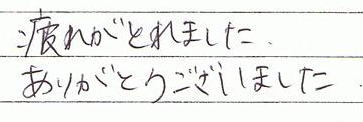 疲れがとれました.
ありがとうございました